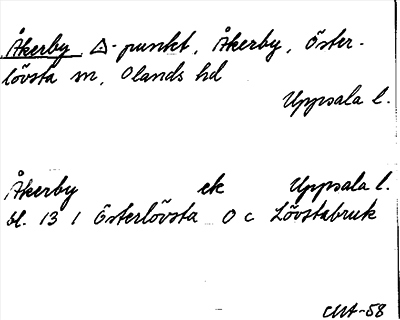 Åkerby △-punkt, Åkerby, Öster-
lövsta sn, Olands hd
Uppsala l.
Åkerby ek Uppsala l.
bl. 13 I Österlövsta O c Lövstabruk
CMA-58